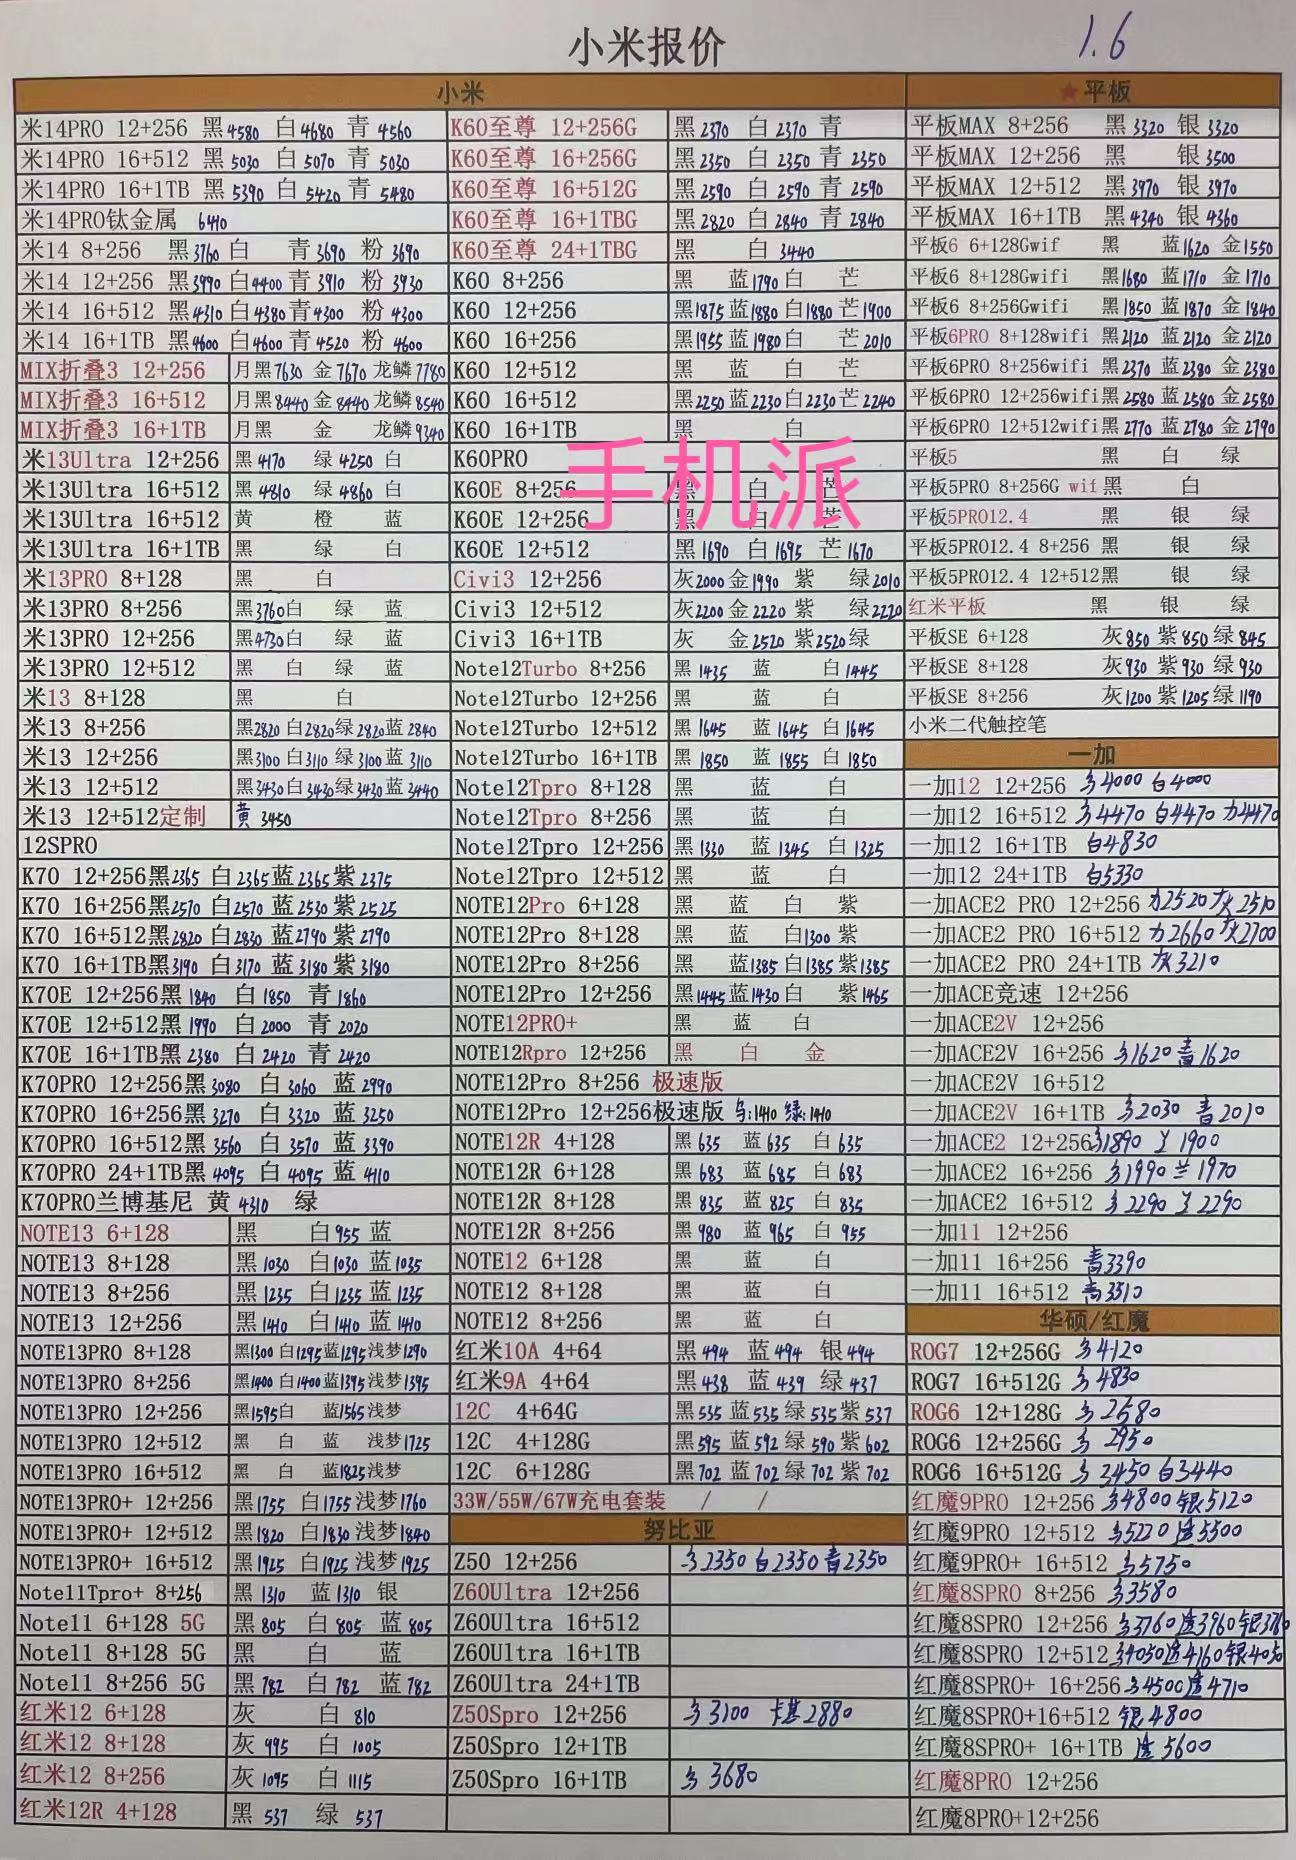 小米报价
1.6
小米
米14PRO 12+256 黑4580 白4680 青4560
米14PRO 16+512 黑5030 白5070 青5030
米14PRO 16+1TB 黑5390 白5420 青5480
米14PRO钛金属 6410
米14 8+256 黑3760 白 青3690 粉3690
米14 12+256 黑3990 白4400 青3910 粉3930
米14 16+512 黑4310 白4380 青4300 粉4300
米14 16+1TB 黑4600 白4600 青4520 粉4600
MIX折叠3 12+256 月黑7630 金7670 龙鳞7780
MIX折叠3 16+512 月黑8440 金8440 龙鳞8540
MIX折叠3 16+1TB 月黑 金 龙鳞9340
米13Ultra 12+256 黑4170 绿4250 白
米13Ultra 16+512 黑4810 绿4860 白
米13Ultra 16+512 黄 橙 蓝
米13Ultra 16+1TB 黑 绿 白
米13PRO 8+128 黑 白
米13PRO 8+256 黑3760 白 绿 蓝
米13PRO 12+256 黑4730 白 绿 蓝
米13PRO 12+512 黑 白 绿 蓝
米13 8+128 黑 白
米13 8+256 黑2820 白2820 绿2820 蓝2840
米13 12+256 黑3100 白3110 绿3100 蓝3110
米13 12+512 黑3430 白3430 绿3430 蓝3440
米13 12+512定制 黄3450
12SPRO
K70 12+256黑2365 白2365 蓝2365 紫2375
K70 16+256黑2570 白2570 蓝2530 紫2525
K70 16+512黑2820 白2830 蓝2790 紫2790
K70 16+1TB黑3190 白3170 蓝3180 紫3180
K70E 12+256黑1840 白1850 青1860
K70E 12+512黑1990 白2000 青2020
K70E 16+1TB黑2380 白2420 青2420
K70PRO 12+256黑3080 白3060 蓝2990
K70PRO 16+256黑3270 白3320 蓝3250
K70PRO 16+512黑3560 白3570 蓝3390
K70PRO 24+1TB黑4095 白4095 蓝4110
K70PRO兰博基尼 黄4310 绿
NOTE13 6+128 黑 白955 蓝
NOTE13 8+128 黑1030 白1030 蓝1035
NOTE13 8+256 黑1235 白1235 蓝1235
NOTE13 12+256 黑1410 白1410 蓝1410
NOTE13PRO 8+128 黑1300 白1295 蓝1295 浅梦1290
NOTE13PRO 8+256 黑1400 白1400 蓝1395 浅梦1395
NOTE13PRO 12+256 黑1595 白 蓝1565 浅梦
NOTE13PRO 12+512 黑 白 蓝 浅梦1725
NOTE13PRO 16+512 黑 白 蓝1825 浅梦
NOTE13PRO+ 12+256 黑1755 白1755 浅梦1760
NOTE13PRO+ 12+512 黑1820 白1830 浅梦1840
NOTE13PRO+ 16+512 黑1925 白1925 浅梦1925
Note11Tpro+ 8+256 黑1310 蓝1310 银
Note11 6+128 5G 黑805 白805 蓝805
Note11 8+128 5G 黑 白 蓝
Note11 8+256 5G 黑782 白782 蓝782
红米12 6+128 灰 白810
红米12 8+128 灰995 白1005
红米12 8+256 灰1095 白1115
红米12R 4+128 黑537 绿537
K60至尊 12+256G 黑2370 白2370 青
K60至尊 16+256G 黑2350 白2350 青2350
K60至尊 16+512G 黑2590 白2590 青2590
K60至尊 16+1TBG 黑2820 白2840 青2840
K60至尊 24+1TBG 黑 白3440
K60 8+256 黑 蓝1790 白 芒
K60 12+256 黑1875 蓝1880 白1880 芒1900
K60 16+256 黑1955 蓝1980 白 芒2010
K60 12+512 黑 蓝 白 芒
K60 16+512 黑2250 蓝2230 白2230 芒2240
K60 16+1TB 黑 白
K60PRO
手机派
K60E 8+256 黑 白 芒
K60E 12+256 黑 白 芒
K60E 12+512 黑1690 白1695 芒1670
Civi3 12+256 灰2000 金1990 紫 绿2010
Civi3 12+512 灰2200 金2220 紫 绿2220
Civi3 16+1TB 灰 金2520 紫2520 绿
Note12Turbo 8+256 黑1435 蓝 白1445
Note12Turbo 12+256 黑 蓝 白
Note12Turbo 12+512 黑1645 蓝1645 白1645
Note12Turbo 16+1TB 黑1850 蓝1855 白1850
Note12Tpro 8+128 黑 蓝 白
Note12Tpro 8+256 黑 蓝 白
Note12Tpro 12+256 黑1330 蓝1345 白1325
Note12Tpro 12+512 黑 蓝 白
NOTE12Pro 6+128 黑 蓝 白 紫
NOTE12Pro 8+128 黑 蓝 白1300 紫
NOTE12Pro 8+256 黑 蓝1385 白1385 紫1385
NOTE12Pro 12+256 黑1445 蓝1430 白 紫1465
NOTE12PRO+ 黑 蓝 白
NOTE12Rpro 12+256 黑 白 金
NOTE12Pro 8+256 极速版
NOTE12Pro 12+256极速版 乌:1410 绿:1410
NOTE12R 4+128 黑635 蓝635 白635
NOTE12R 6+128 黑683 蓝685 白683
NOTE12R 8+128 黑835 蓝825 白835
NOTE12R 8+256 黑980 蓝965 白955
NOTE12 6+128 黑 蓝 白
NOTE12 8+128 黑 蓝 白
NOTE12 8+256 黑 蓝 白
红米10A 4+64 黑494 蓝494 银494
红米9A 4+64 黑438 蓝439 绿437
12C 4+64G 黑535 蓝535 绿535 紫537
12C 4+128G 黑595 蓝592 绿590 紫602
12C 6+128G 黑702 蓝702 绿702 紫702
33W/55W/67W充电套装 / /
努比亚
Z50 12+256 乌2350 白2350 青2350
Z60Ultra 12+256
Z60Ultra 16+512
Z60Ultra 16+1TB
Z60Ultra 24+1TB
Z50Spro 12+256 乌3100 卡其2880
Z50Spro 12+1TB
Z50Spro 16+1TB 乌3680
★平板
平板MAX 8+256 黑3320 银3320
平板MAX 12+256 黑 银3500
平板MAX 12+512 黑3970 银3970
平板MAX 16+1TB 黑4340 银4360
平板6 6+128Gwif 黑 蓝1620 金1550
平板6 8+128Gwifi 黑1680 蓝1710 金1710
平板6 8+256Gwifi 黑1850 蓝1870 金1840
平板6PRO 8+128wifi 黑2120 蓝2120 金2120
平板6PRO 8+256wifi 黑2370 蓝2380 金2380
平板6PRO 12+256wifi黑2580 蓝2580 金2580
平板6PRO 12+512wifi黑2770 蓝2780 金2790
平板5 黑 白 绿
平板5PRO 8+256G wif 黑 白
平板5PRO12.4 黑 银 绿
平板5PRO12.4 8+256 黑 银 绿
平板5PRO12.4 12+512黑 银 绿
红米平板 黑 银 绿
平板SE 6+128 灰850 紫850 绿845
平板SE 8+128 灰930 紫930 绿930
平板SE 8+256 灰1200 紫1205 绿1190
小米二代触控笔
一加
一加12 12+256 乌4000 白4000
一加12 16+512 乌4470 白4470 力4470
一加12 16+1TB 白4830
一加12 24+1TB 白5330
一加ACE2 PRO 12+256 力2520 灰2510
一加ACE2 PRO 16+512 力2660 灰2700
一加ACE2 PRO 24+1TB 灰3210
一加ACE竞速 12+256
一加ACE2V 12+256
一加ACE2V 16+256 乌1620 青1620
一加ACE2V 16+512
一加ACE2V 16+1TB 乌2030 青2010
一加ACE2 12+256乌1890 兰1900
一加ACE2 16+256 乌1990 兰1970
一加ACE2 16+512 乌2290 兰2290
一加11 12+256
一加11 16+256 青3390
一加11 16+512 青3510
华硕/红魔
ROG7 12+256G 乌4120
ROG7 16+512G 乌4830
ROG6 12+128G 乌2580
ROG6 12+256G 乌2950
ROG6 16+512G 乌3450 白3440
红魔9PRO 12+256 乌4800 银5120
红魔9PRO 12+512 乌5220 透5500
红魔9PRO+ 16+512 乌5750
红魔8SPRO 8+256 乌3580
红魔8SPRO 12+256 乌3760 透3960 银3760
红魔8SPRO 12+512 乌4050 透4160 银4050
红魔8SPRO+ 16+256 乌4500 透4710
红魔8SPRO+16+512 银4800
红魔8SPRO+ 16+1TB 透5600
红魔8PRO 12+256
红魔8PRO+12+256